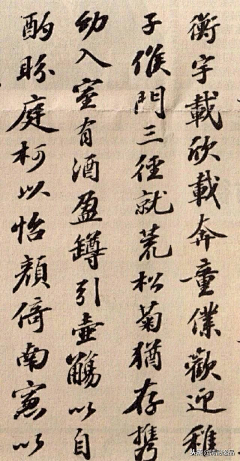 衡宇載欣載奔童僕歡迎稚
子候門三徑就荒松菊猶存攜
幼入室有酒盈罇引壺觴以自
酌眄庭柯以怡顏倚南窻以